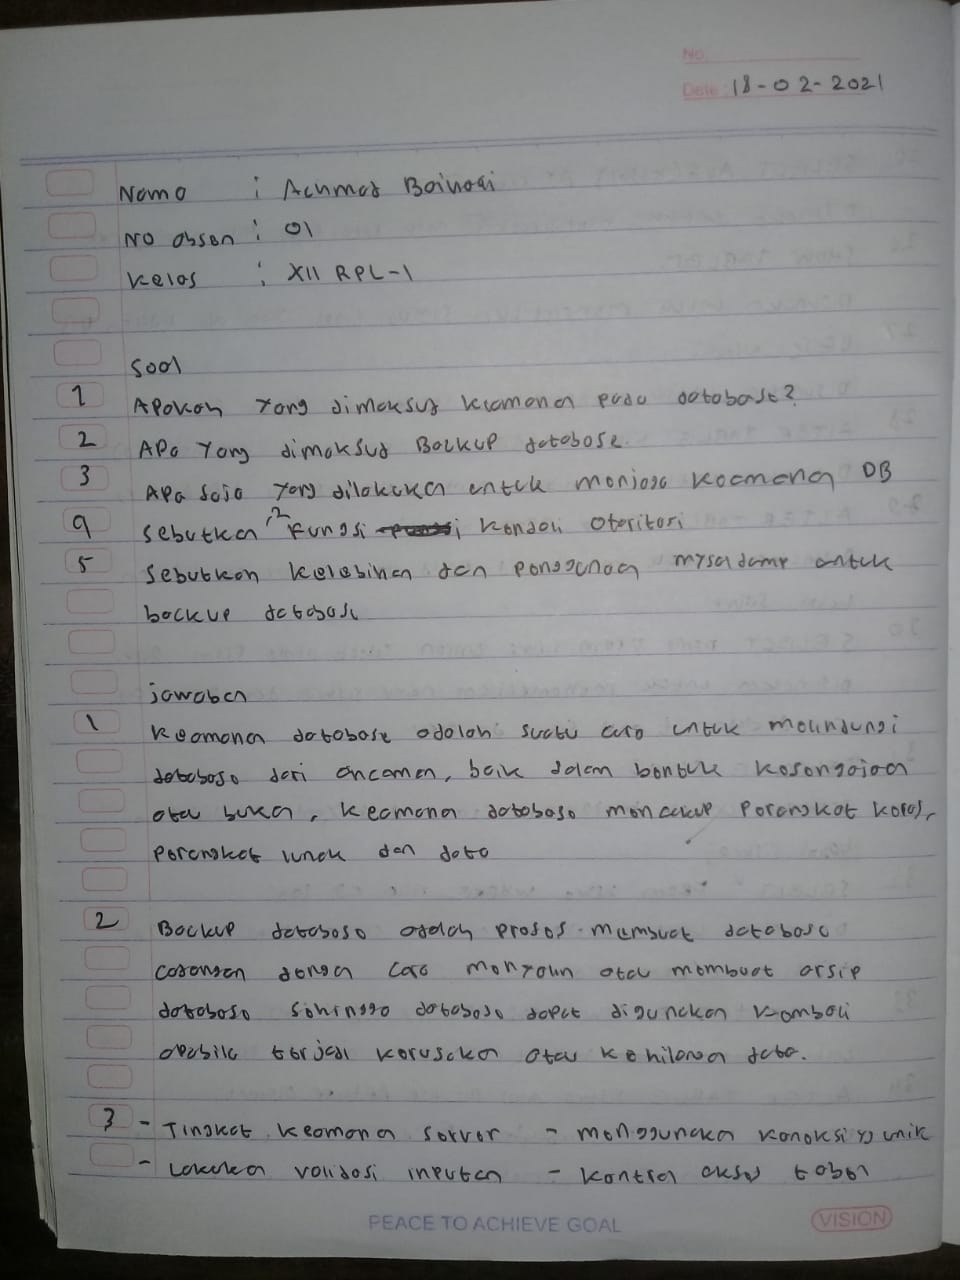 No.
Date: 18-02-2021
Nama : Achmad Bainadi
No absen : 01
Kelas : XII RPL-1
Soal
1 Apakah yang dimaksud keamana pada database?
2 Apa yang dimaksud Backup database.
3 Apa saja yang dilakuka untuk menjaga keamana DB
4 Sebutka ,2 fungsi kendali otoritori
5 Sebutkan kelebihan dan penggunaa mysqldump untuk
backup database
jawaban
1 Keamana database adalah suatu cara untuk melindungi
database dari ancaman, baik dalam bentuk kesengajaa
atau buka, keamana database mencakup perangkat keras,
perangkat lunak dan data
2 Backup database adalah proses membuat database
cadangan denga cara menyalin atau membuat arsip
database sehingga database dapat digunakan kembali
apabila terjadi kerusaka atau kehilanga data.
3 - Tingkat keamana server - menggunaka koneksi yg unik
- Lakuka validasi inputan - kontrol akses tabel
PEACE TO ACHIEVE GOAL
VISION